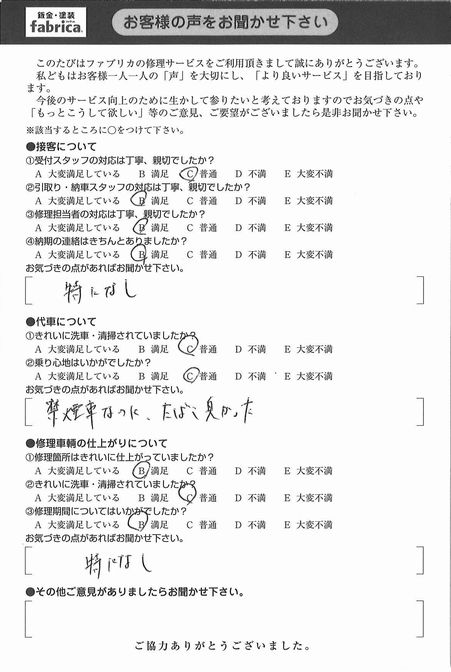 鈑金・塗装
fabrica.
お客様の声をお聞かせ下さい
このたびはファブリカの修理サービスをご利用頂きまして誠にありがとうございます。
私どもはお客様一人一人の「声」を大切にし、「より良いサービス」を目指しており
ます。
今後のサービス向上のために生かして参りたいと考えておりますのでお気づきの点や
「もっとこうして欲しい」等のご意見、ご要望がございましたら是非お聞かせ下さい。
※該当するところに○をつけて下さい。
●接客について
①受付スタッフの対応は丁寧、親切でしたか?
A 大変満足している B 満足 C 普通 D 不満 E 大変不満
②引取り・納車スタッフの対応は丁寧、親切でしたか?
A 大変満足している B 満足 C 普通 D 不満 E 大変不満
③修理担当者の対応は丁寧、親切でしたか?
A 大変満足している B 満足 C 普通 D 不満 E 大変不満
④納期の連絡はきちんとありましたか?
A 大変満足している B 満足 C 普通 D 不満 E 大変不満
お気づきの点があればお聞かせ下さい。
特になし
●代車について
①きれいに洗車・清掃されていましたか?
A 大変満足している B 満足 C 普通 D 不満 E 大変不満
②乗り心地はいかがでしたか?
A 大変満足している B 満足 C 普通 D 不満 E 大変不満
お気づきの点があればお聞かせ下さい。
禁煙車なのに、たばこ臭かった
●修理車輌の仕上がりについて
①修理箇所はきれいに仕上がっていましたか?
A 大変満足している B 満足 C 普通 D 不満 E 大変不満
②きれいに洗車・清掃されていましたか?
A 大変満足している B 満足 C 普通 D 不満 E 大変不満
③修理期間についてはいかがでしたか?
A 大変満足している B 満足 C 普通 D 不満 E 大変不満
お気づきの点があればお聞かせ下さい。
特になし
●その他ご意見がありましたらお聞かせ下さい。
ご協力ありがとうございました。